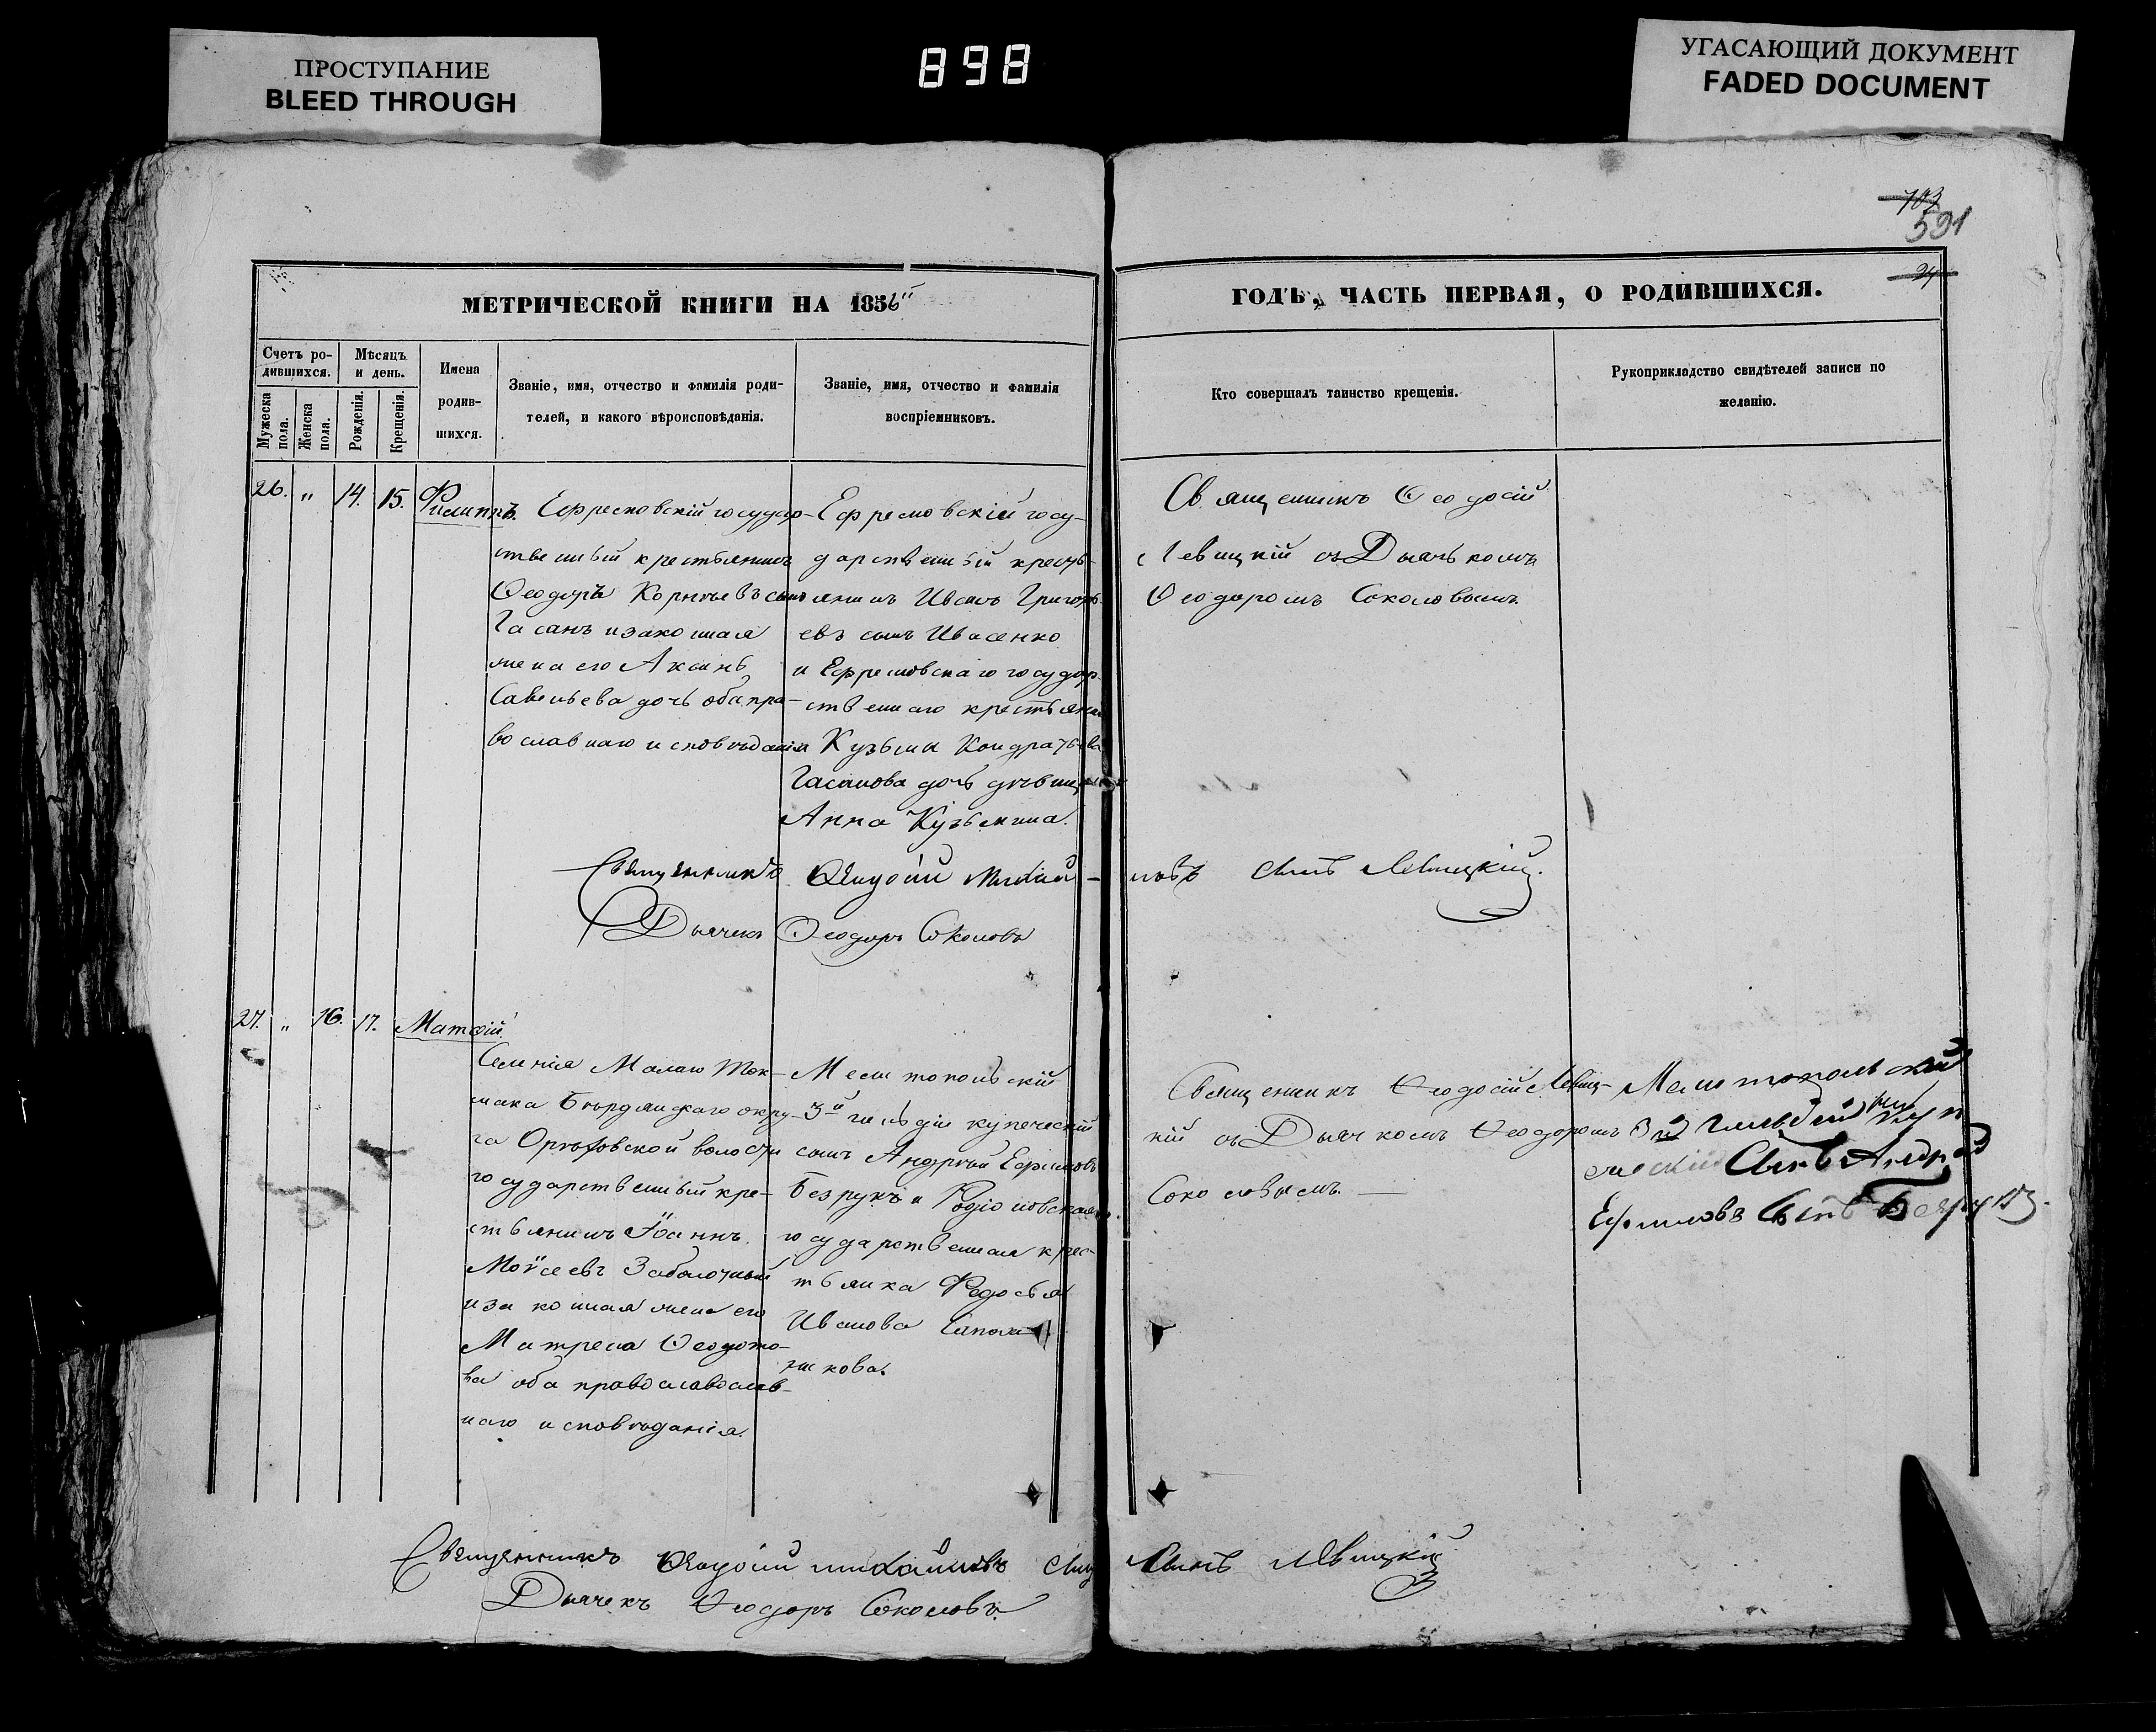 ПРОСТУПАНИЕ
BLEED THROUGH
898
УГАСАЮЩИЙ ДОКУМЕНТ
FADED DOCUMENT
103
591
24
МЕТРИЧЕСКОЙ КНИГИ НА 1856
ГОДЪ, ЧАСТЬ ПЕРВАЯ, О РОДИВШИХСЯ.
Счетъ ро-
дившихся.
Мужеска
пола.
Женска
пола.
Мѣсяцъ
и день.
Рожденія.
Крещенія.
Имена
родив-
шихся.
Званіе, имя, отчество и фамилія роди-
телей, и какого вѣроисповѣданія.
Званіе, имя, отчество и фамилія
воспріемниковъ.
Кто совершалъ таинство крещенія.
Рукоприкладство свидѣтелей записи по
желанію.
26. " 14. 15. Филиппъ.
Ефремовскій государ-
ственный крестьянинъ
Ѳеодоръ Корнѣевъ сынъ
Гасанъ и законная
жена его
Савельева дочь оба пра-
вославнаго исповѣданія
Ефремовскій госу-
дарственный кресть-
янинъ Иванъ Григорь-
евъ сынъ Ивасенко
и Ефремовскаго государ-
ственнаго крестьянина
Кузьмы Кондратьева
Гасанова дочь дѣвица
Анна Кузьмина.
Священникъ Ѳеодосій
Левицкій съ Дьячькомъ
Ѳеодоромъ Соколовымъ.
Священникъ Ѳеодосій Михай-
ловъ сынъ Левицкій.
Дьячекъ Ѳеодоръ Соколовъ
27. " 16. 17. Матѳій.
Селенія Малаго Ток-
мака Бѣрдянскаго окру-
га Орѣховской волости
государственный кре-
стьянинъ Іоаннъ
Моѵсеевъ Заболотный
и законная жена его
Матрена Ѳеодото-
ва оба православослав-
наго исповѣданія.
Мелитопольскій
3й гильдіи купеческій
сынъ Андрей Ефимовъ
Безрукъ и Родіоновская
государственная крес-
тьянка Федосья
Иванова
кова.
Священникъ Ѳеодосій Левиц-
кій съ Дьячкомъ Ѳеодоромъ
Соколовымъ.
Мелитопольский
3й Гильдии куп
еческий Сынъ Андрей
Ефимовъ Сынъ Безрукъ.
Священникъ Ѳеодосій Михайловъ Сынъ Левицкій
Дьячекъ Ѳеодоръ Соколовъ